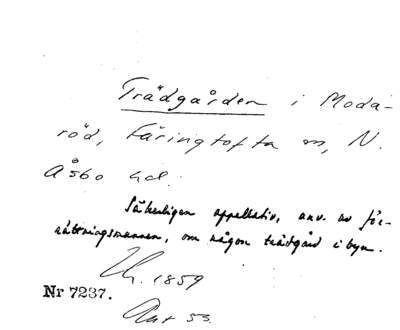 Trädgården i Moda-
röd, Färingtofta sn, N.
Åsbo hd.
Säkerligen appellativ, anv. av för-
rättningsmannen, om någon trädgård i byn.
1859
Nr 7237.
Akt 53.